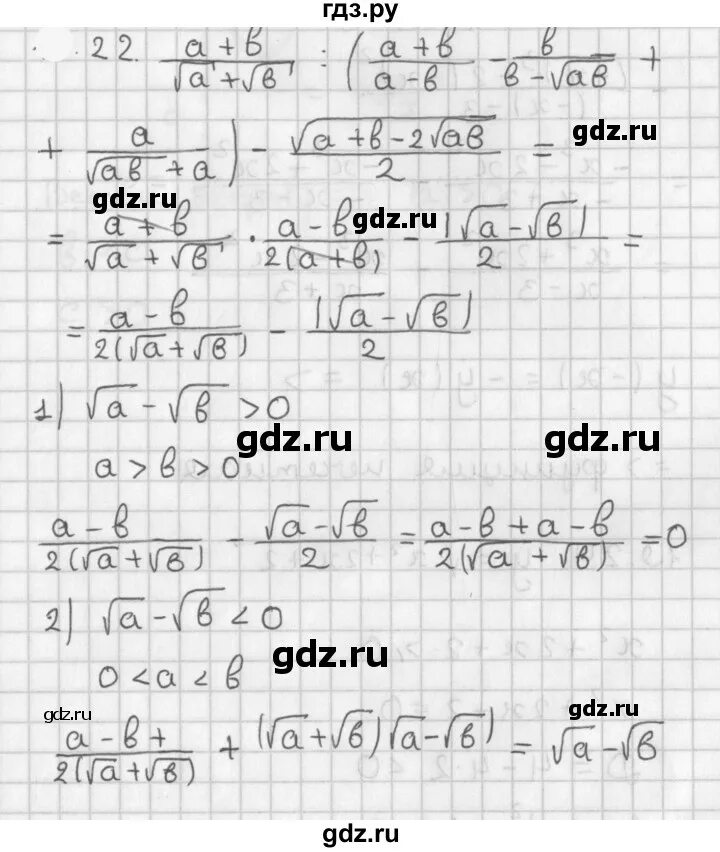 гдз.ру
22. (a+b)/(√a+√b) : ((a+b)/(a-b) - b/(b-√ab) +
+ a/(√ab+a)) - √(a+b-2√ab)/2 =
gdz.ru
gdz.ru
gdz.ru
= (a+b)/(√a+√b) · (a-b)/(2(a+b)) - |√a-√b|/2 =
= (a-b)/(2(√a+√b)) - |√a-√b|/2
1) √a-√b >0
gdz.ru
gdz.ru
a>b>0
(a-b)/(2(√a+√b)) - (√a-√b)/2 = (a-b+a-b)/(2(√a+√b)) =0
2) √a-√b<0
gdz.ru
0<a<b
gdz.ru
gdz.ru
(a-b+)/(2(√a+√b)) + (√a+√b)(√a-√b) = √a-√b
gdz.ru